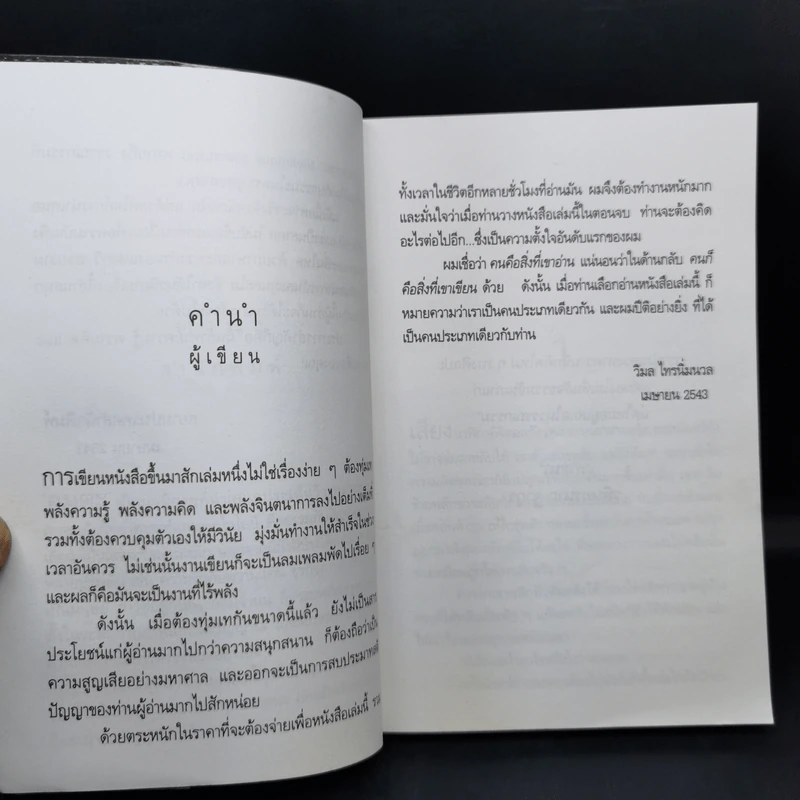 คำนำ
ผู้เขียน
การเขียนหนังสือขึ้นมาสักเล่มหนึ่งไม่ใช่เรื่องง่าย ๆ ต้องทุ่มเท
พลังความรู้ พลังความคิด และพลังจินตนาการลงไปอย่างเต็มที่
รวมทั้งต้องควบคุมตัวเองให้มีวินัย มุ่งมั่นทำงานให้สำเร็จในช่วง
เวลาอันควร ไม่เช่นนั้นงานเขียนก็จะเป็นลมเพลมพัดไปเรื่อย ๆ
และผลก็คือมันจะเป็นงานที่ไร้พลัง
ดังนั้น เมื่อต้องทุ่มเทกันขนาดนี้แล้ว ยังไม่เป็น
ประโยชน์แก่ผู้อ่านมากไปกว่าความสนุกสนาน ก็ต้องถือว่าเป็น
ความสูญเสียอย่างมหาศาล และออกจะเป็นการสบประมาท
ปัญญาของท่านผู้อ่านมากไปสักหน่อย
ด้วยตระหนักในราคาที่จะต้องจ่ายเพื่อหนังสือเล่มนี้ รวม
ทั้งเวลาในชีวิตอีกหลายชั่วโมงที่อ่านมัน ผมจึงต้องทำงานหนักมาก
และมั่นใจว่าเมื่อท่านวางหนังสือเล่มนี้ในตอนจบ ท่านจะต้องคิด
อะไรต่อไปอีก...ซึ่งเป็นความตั้งใจอันดับแรกของผม
ผมเชื่อว่า คนคือสิ่งที่เขาอ่าน แน่นอนว่าในด้านกลับ คนก็
คือสิ่งที่เขาเขียน ด้วย ดังนั้น เมื่อท่านเลือกอ่านหนังสือเล่มนี้ ก็
หมายความว่าเราเป็นคนประเภทเดียวกัน และผมปีติอย่างยิ่ง ที่ได้
เป็นคนประเภทเดียวกับท่าน
วิมล ไทรนิ่มนวล
เมษายน 2543